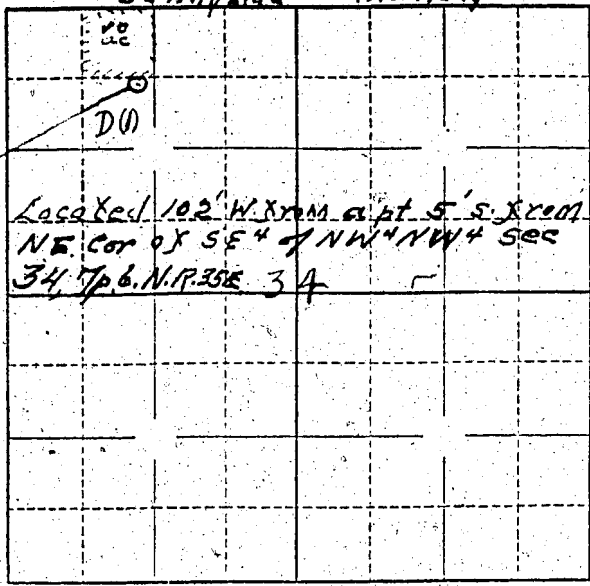 10
ac
D(1)
Located 102' W from a pt 5' S. from
NE Cor of SE 4 of NW 4 NW 4 Sec
34, Tp. 6. N. R. 35E 34